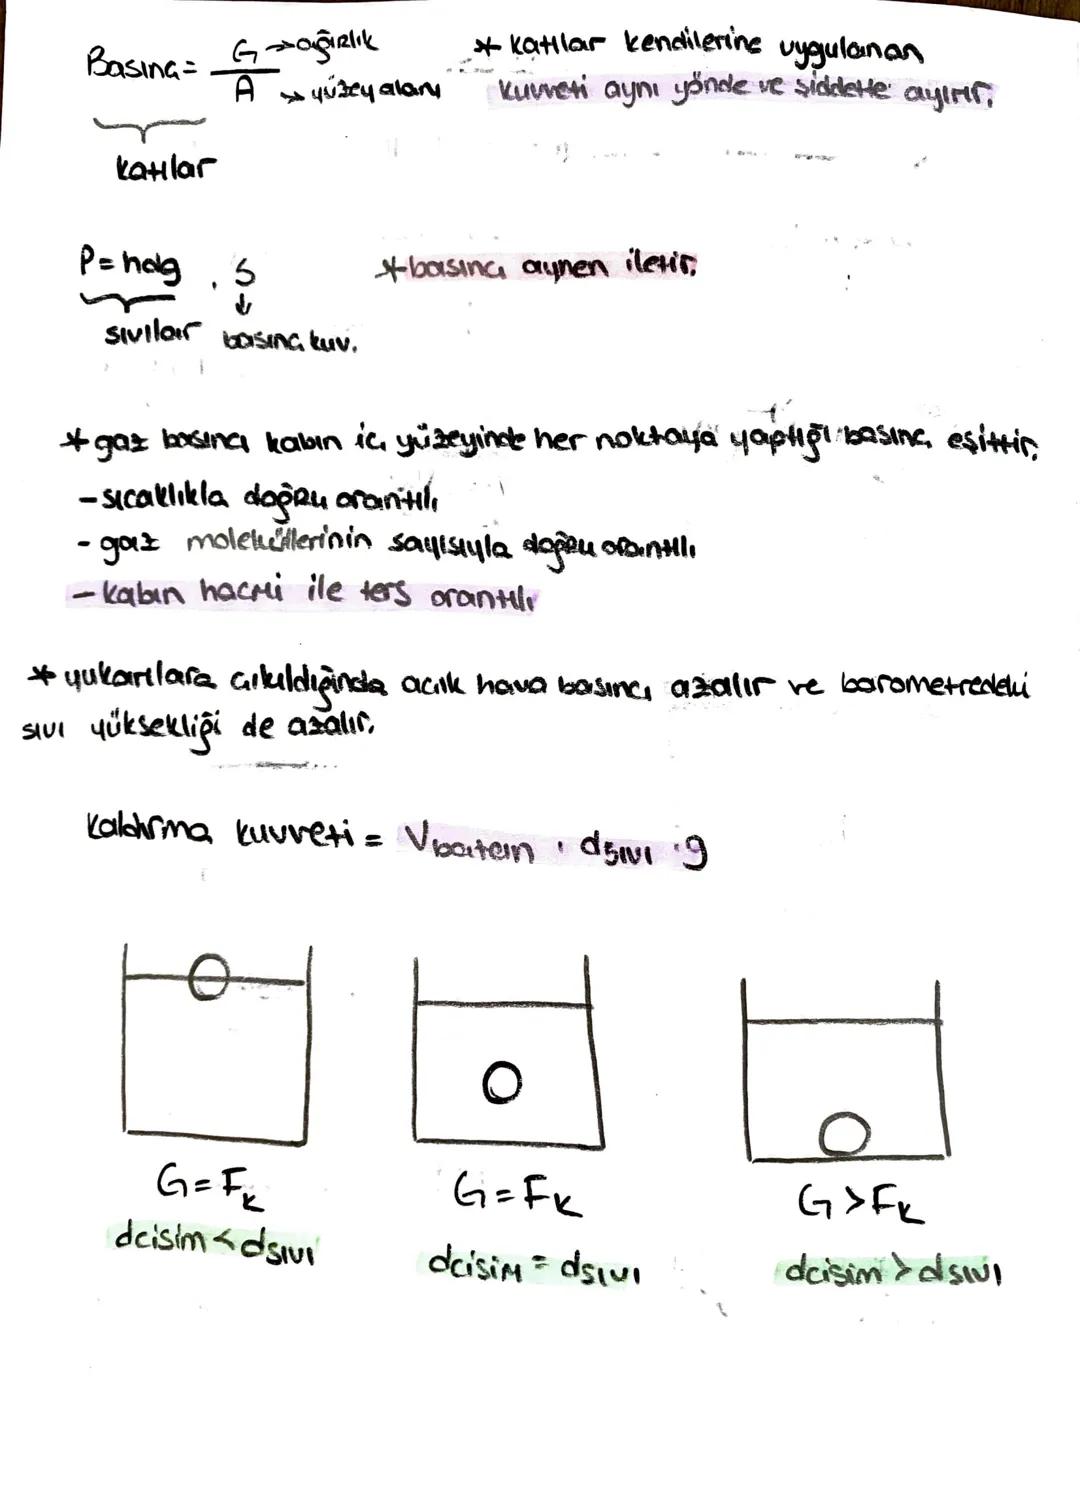 Basınç = G → ağırlık
A → yüzey alanı
katılar
* katılar kendilerine uygulanan
kuvveti aynı yönde ve şiddette ayırır.
P = hdg . S
sıvılar basınç kuv.
* basıncı aynen iletir.
* gaz basıncı kabın iç yüzeyinde her noktaya yaptığı basınç eşittir.
- sıcaklıkla doğru orantılı
- gaz moleküllerinin sayısıyla doğru orantılı
- kabın hacmi ile ters orantılı
* yukarılara çıkıldığında açık hava basıncı azalır ve barometredeki
sıvı yüksekliği de azalır.
kaldırma kuvveti = Vbatan . dsıvı . g
G = Fk
dcisim < dsıvı
G = Fk
dcisim = dsıvı
G > Fk
dcisim > dsıvı